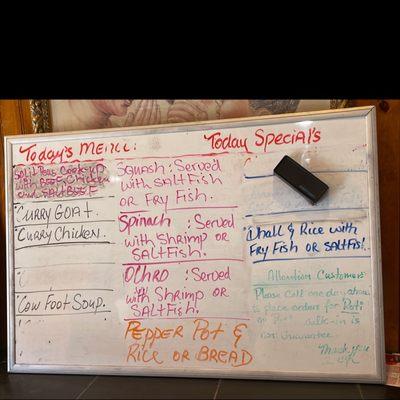 Today's MENU:
Today SPECIAl's
Split Peas Cook-up
with BEEF, Chicken
and SALTBEEF
CURRY GOAT.
CURRY Chicken.
COW FOOT SOUP.
SQUASH: SERVED
with SALTFISH
OR FRY FISH.
SPINACH: SERVED
with SHRIMP OR
SALTFISH.
OCHRO: SERVED
with SHRIMP OR
SALTFISH.
PEPPER POT &
RICE OR BREAD
DHALL & RICE WITH
FRY FISH OR SALTFIS!
Attention Customers
Please call one day ahead
to place orders for Roti
walk-in is
not Guarantee.
Thank you